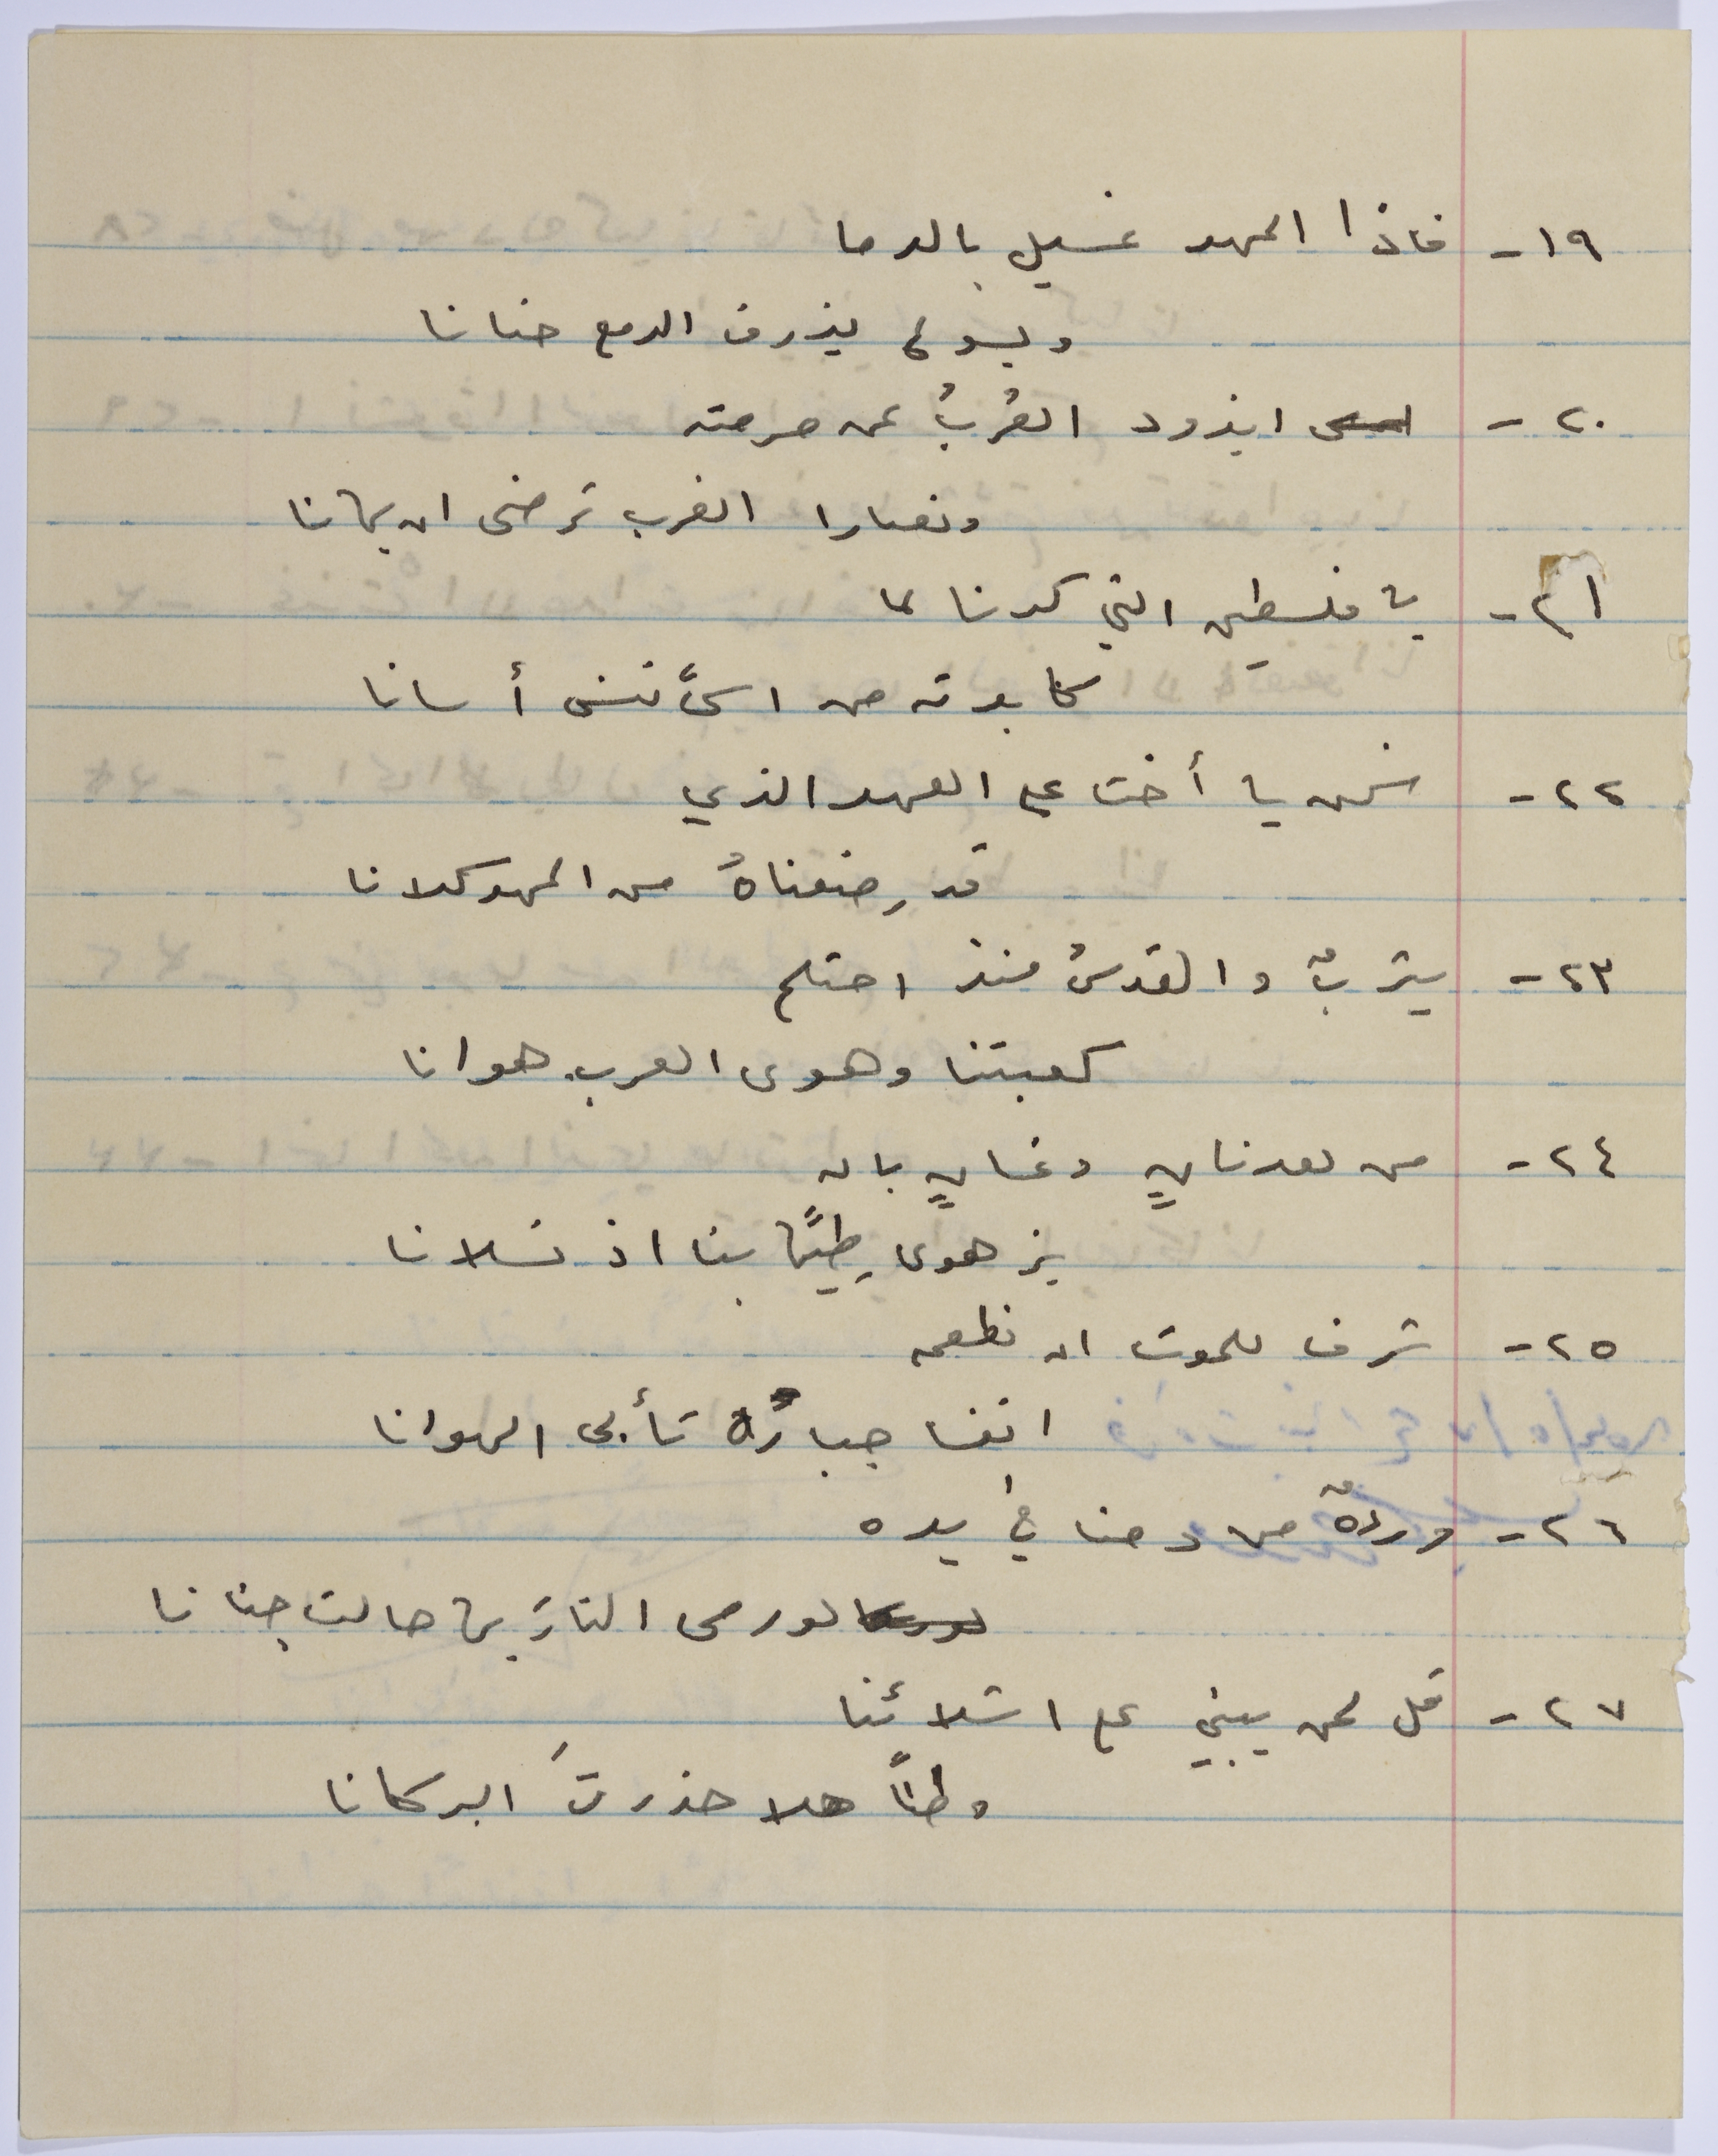 ١٩- فاذا المهد غسيل بالدما
ويسوع يذرف الدمع حنانا
٢٠- ايذود العُربُ عن حرمته
ونصارا الغرب ترضى ان يهانا
٢١- يا فلسطين التي كدنا لما
كابدته من اسىً ننسى أسانا
٢٢- نحن يا أخت على العهد الذي
قد رضعناهُ من المهد كلانا
٢٣- يثربٌ والقدسُ منذ احتلما
كعبتنا وهوى العرب هوانا
٢٤- من لعدنانٍ وغسانٍ بان
يزهوى طيبًا بنا اذ نسلانا
٢٥- شرف للموت ان نطعمه
انفسا جبارُة تأبى الهوانا
٢٦- وردةٌ من دمنا في يده
لو رمى النارَ بها حالت جنانا
٢٧- قل لمن يبني على اشلائنا
وطنًا هلا حذرتَ البركانا